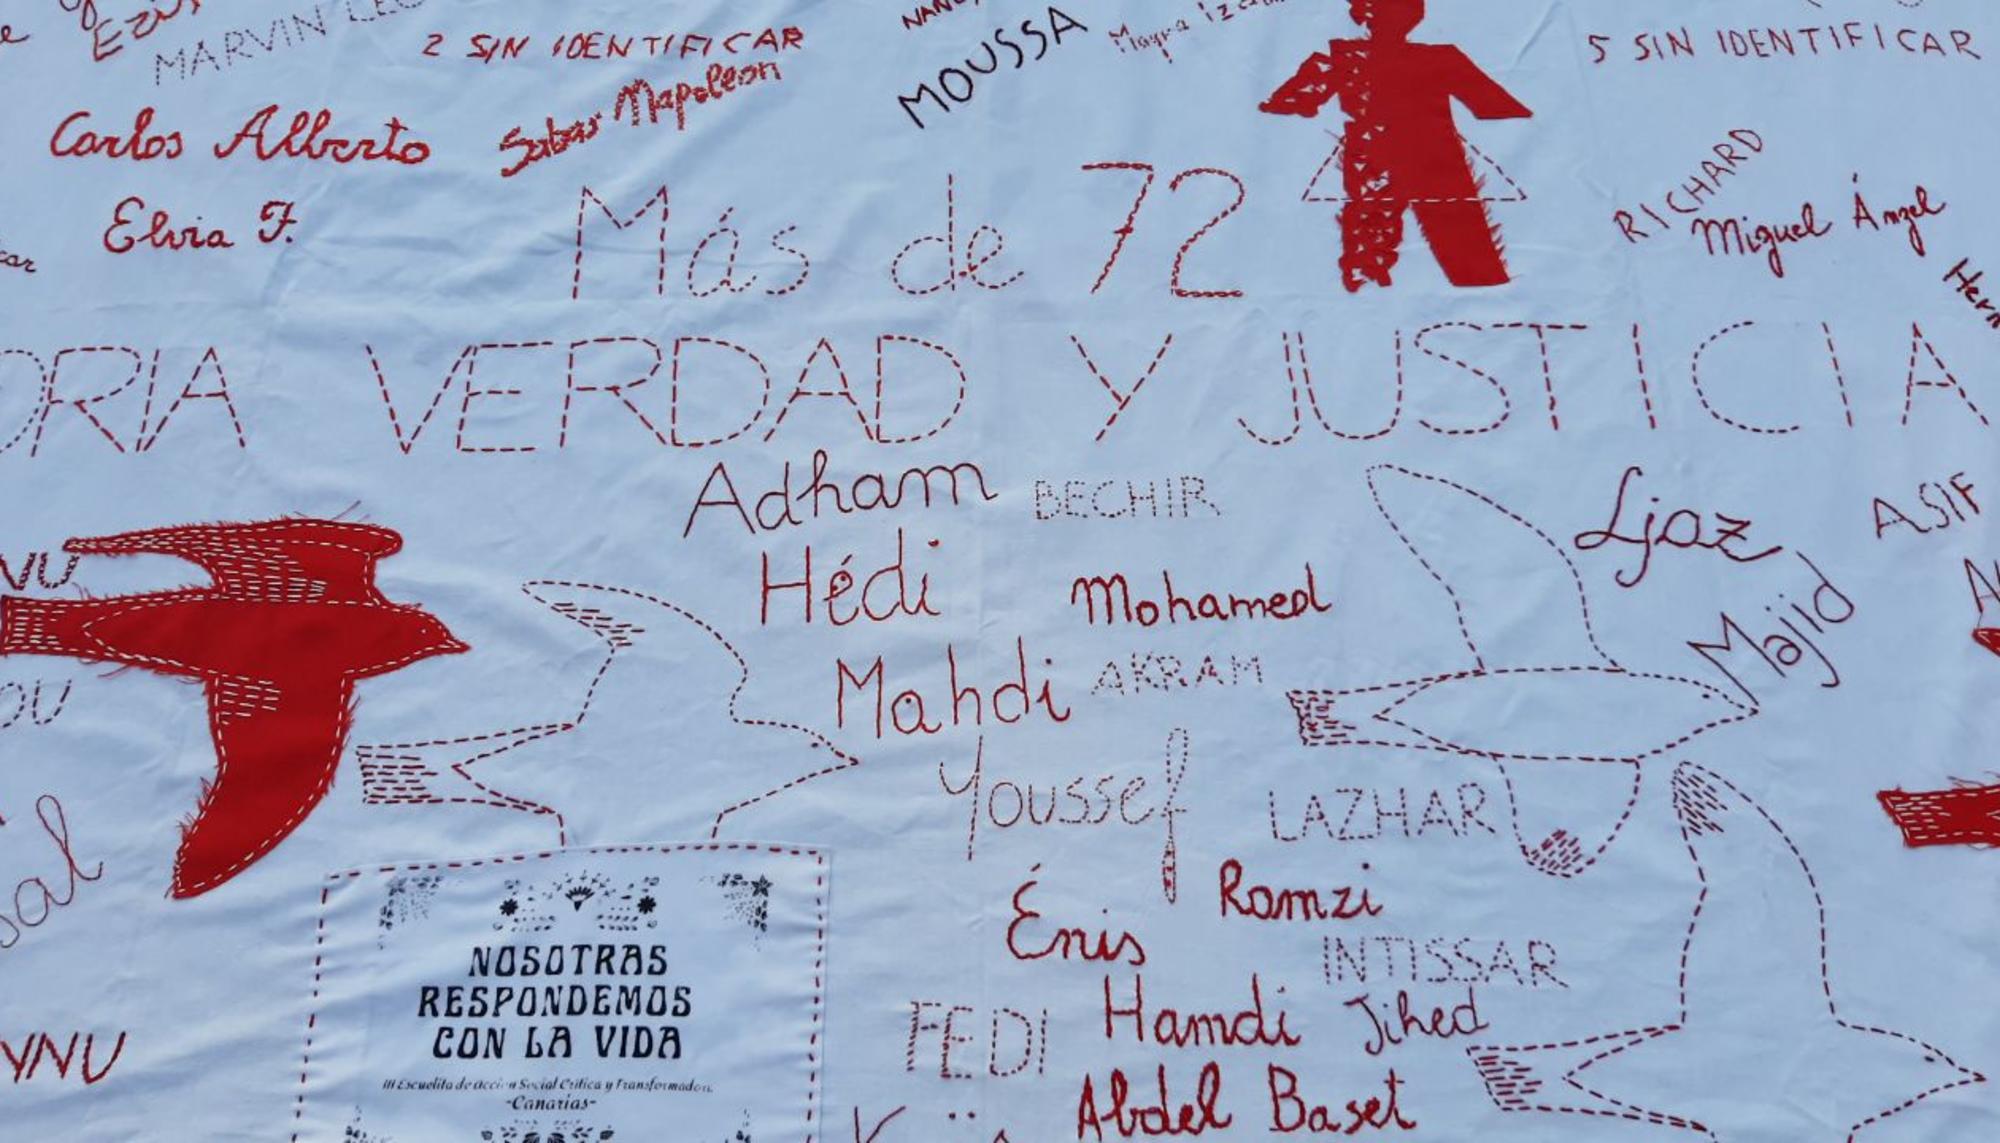 MARVIN
2 SIN IDENTIFICAR
MOUSSA
5 SIN IDENTIFICAR
Carlos Alberto
Sabas Napoleon
Elvia F.
Más de 72
RICHARD
Miguel Ángel
ORIA VERDAD Y JUSTICIA
Adham
BECHIR
Ljaz
ASIF
Hédi
Mohamed
Majid
Mahdi
AKRAM
Youssef
LAZHAR
Énis
Ramzi
INTISSAR
FEDI
Hamdi
Jihed
Abdel Baset
NOSOTRAS
RESPONDEMOS
CON LA VIDA
III Escuelita de acción Social Crítica y Transformadora
-Canarias-